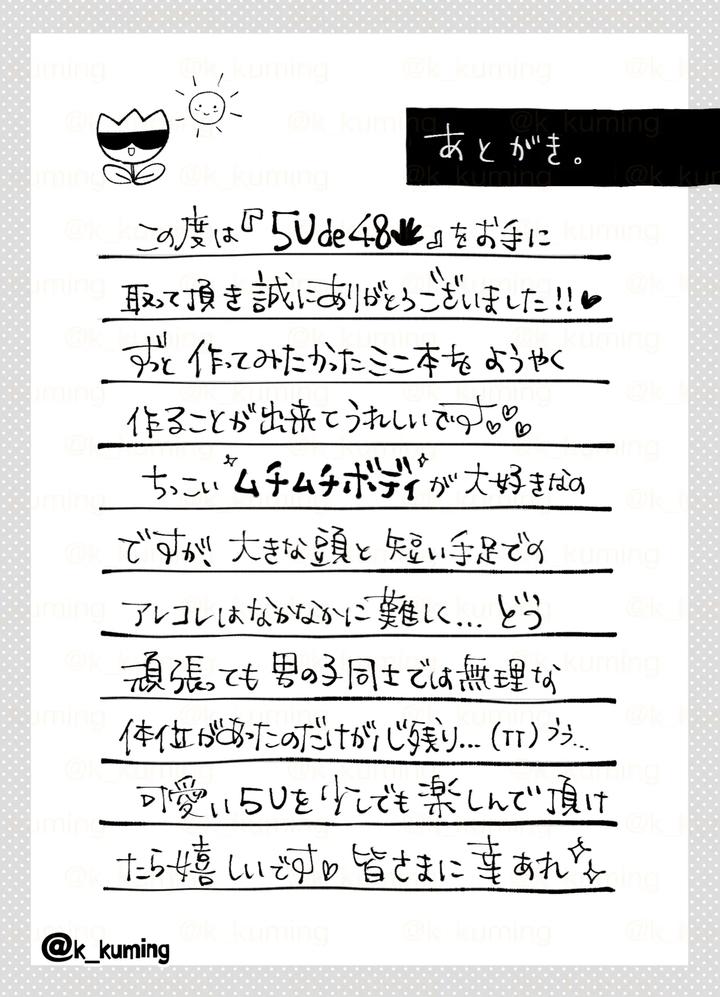 あとがき。
この度は『5Ude48』をお手に
取って頂き誠にありがとうございました!!♥
ずっと作ってみたかったミニ本を ようやく
作ることが出来てうれしいです♡♡♡
ちっこい ムチムチボディ が大好きなの
ですが、大きな頭と短い手足での
アレコレはなかなかに難しく… どう
頑張っても男の子同士では無理な
体位があったのだけが心残り…(TT)ううっ…
可愛い5Uを少しでも楽しんで頂け
たら嬉しいです♡皆さまに幸あれ
@k_kuming